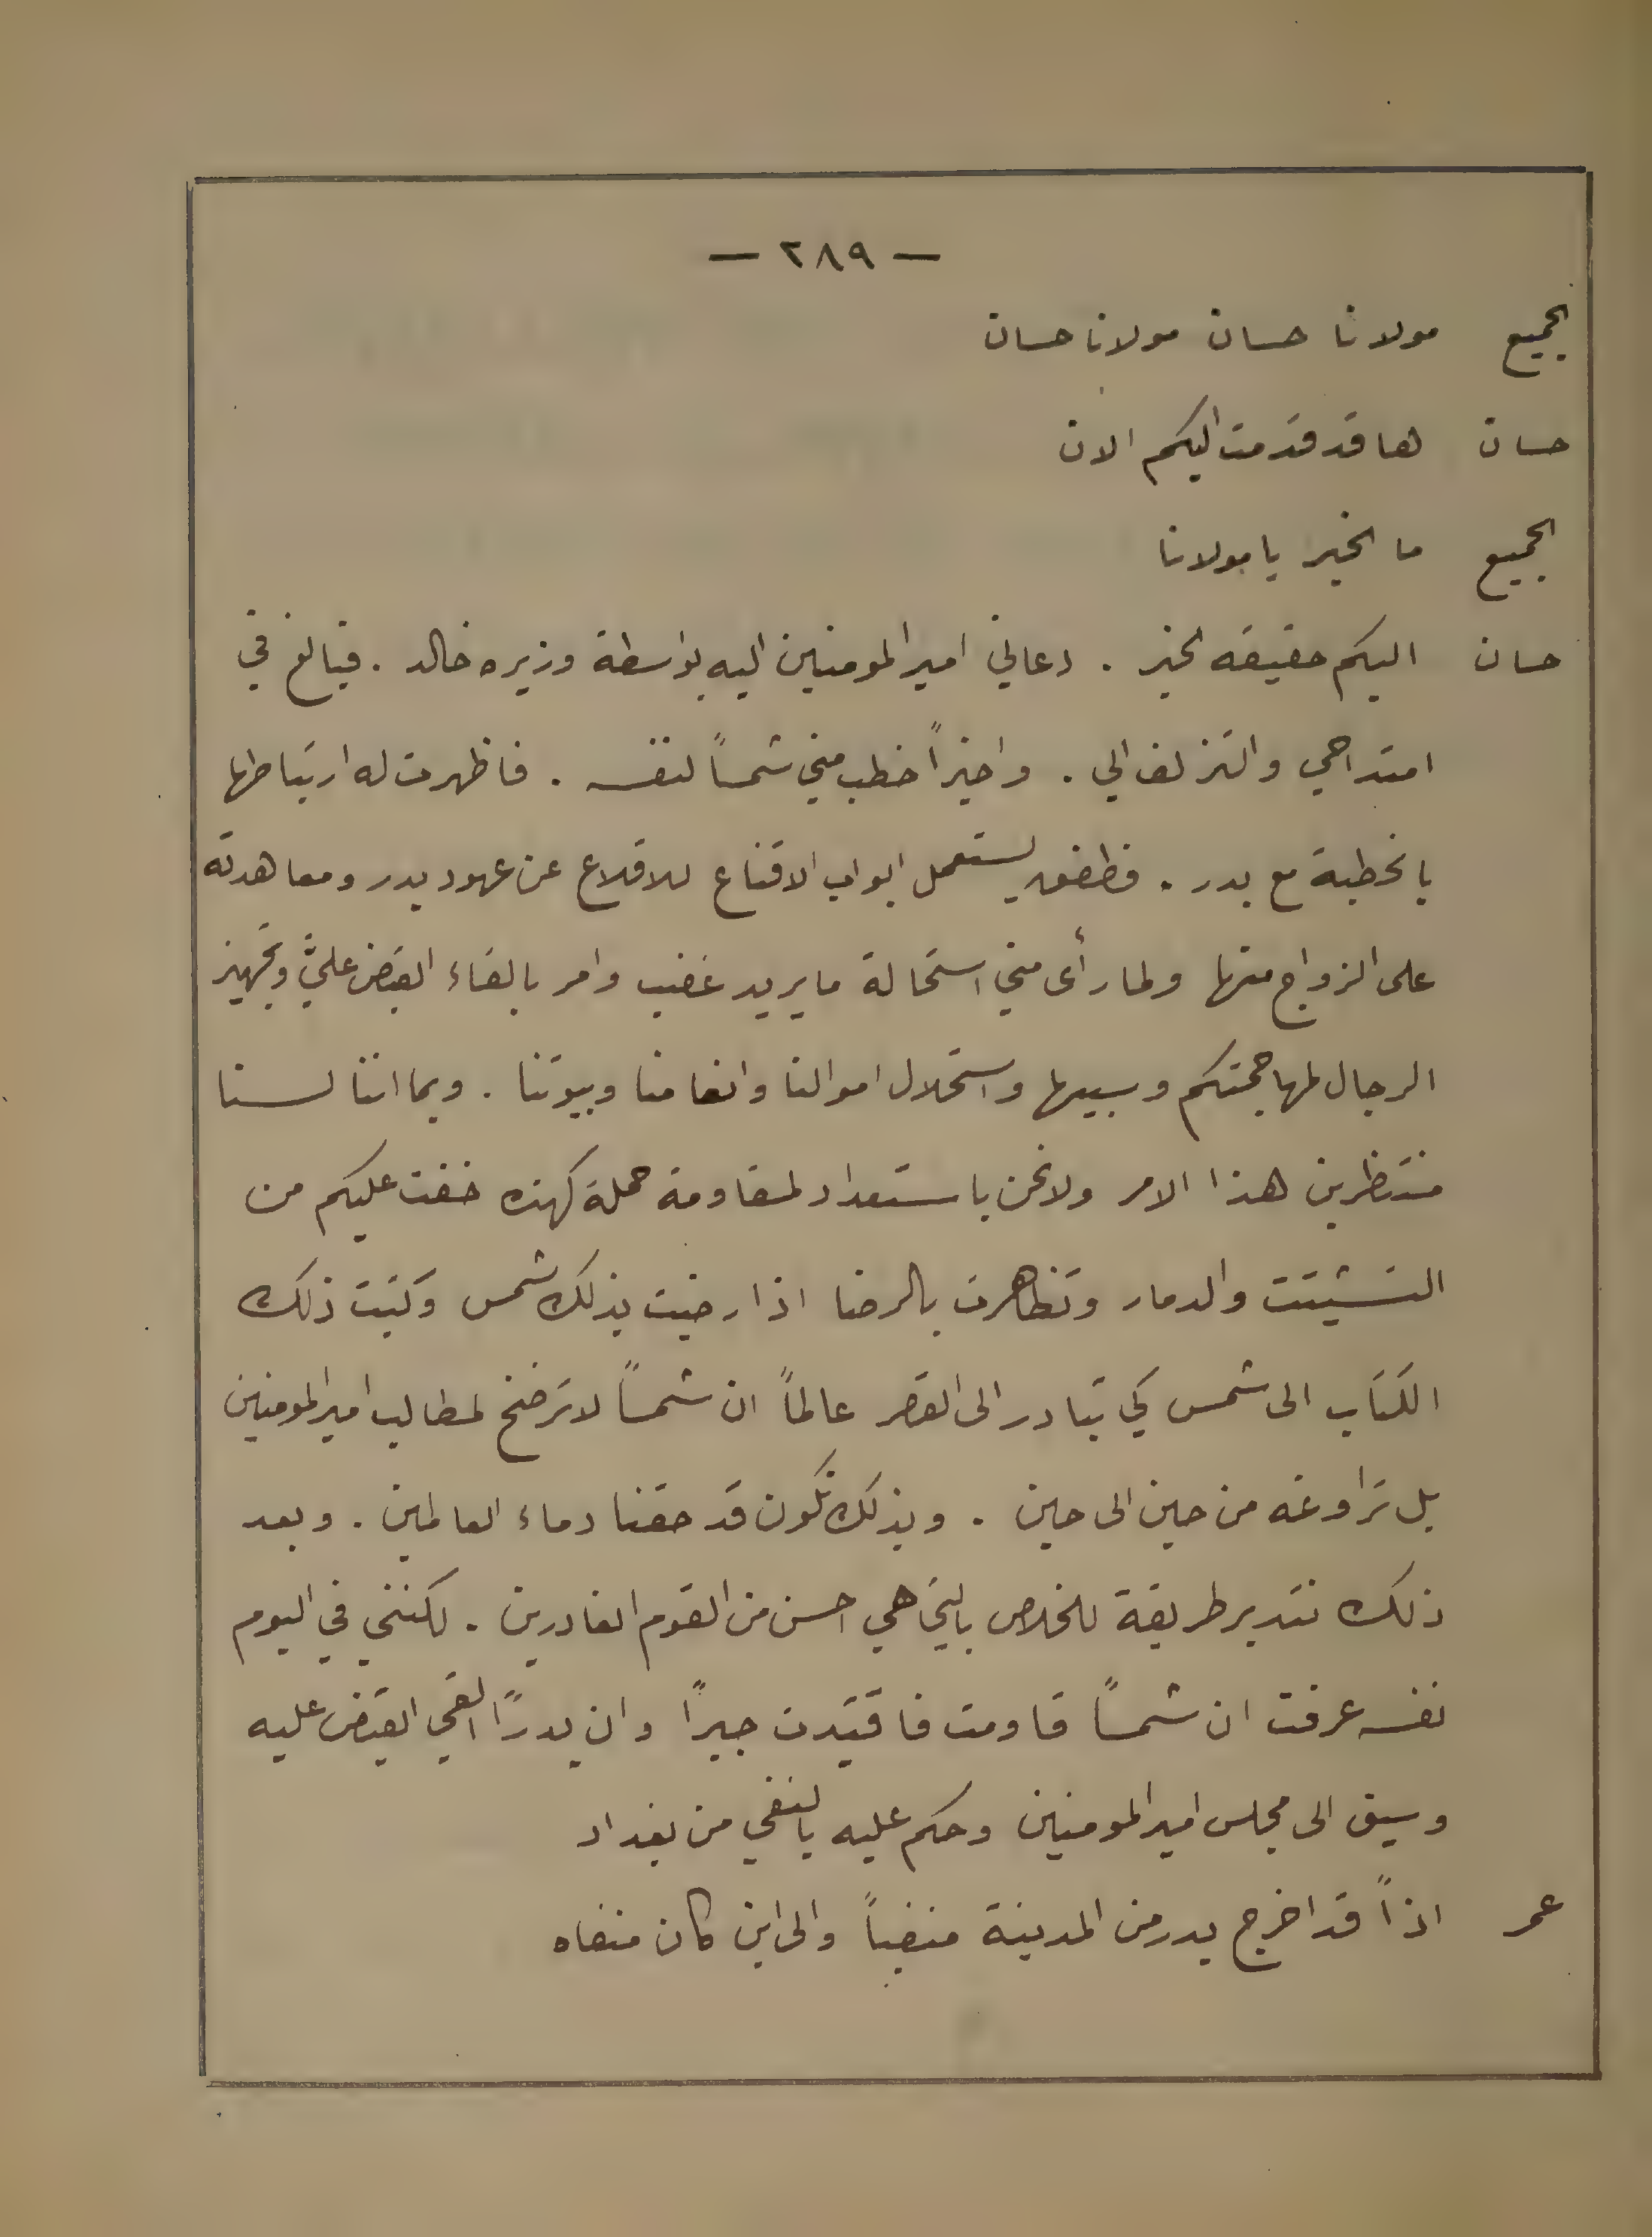 — ٢٨٩ —
الجميع مولانا حسان مولانا حسان
حسان ها قد قدمت اليكم الان
الجميع ما الخبر يا مولانا
حسان اليكم حقيقه الخبر . دعاني امير المومنين اليه بواسطة وزيره خالد . فبالغ في
امتداحي والتزلف الي . واخيراً خطب مني شمساً لنفسه . فاظهرت له ارتباطها
بالخطبة مع بدر . فطفق يستعمل ابواب الاقناع للاقلاع عن عهود بدر ومعاهدته
على الزواج منها ولما رأى مني استحالة ما يريد غضب وامر بالقاء القبض عليَّ وتجهيز
الرجال لمهاجمتكم وسبيها واستحلال اموالنا وانعامنا وبيوتنا . وبما اننا لسنا
منتظرين هذا الامر ولا نحن باستعداد لمقاومة حملة كهذه خفت عليكم من
التشيتت والدمار وتظاهرت بالرضا اذا رضيت بذلك شمس وكتبت ذلك
الكتاب الى شمس كي تبادر الى القصر عالماً ان شمساً لا ترضخ لمطاليب امير المومنين
بل تراوغه من حين الى حين . وبذلك نكون قد حقنا دماء العالمين . وبعد
ذلك نتدبر طريقة للخلاص بالتي هي احسن من القوم الغادرين . لكنني في اليوم
نفسه عرفت ان شمساً قاومت فاقتيدت جبرًا وان بدرًا القي القبض عليه
وسيق الى مجلس امير المومنين وحكم عليه بالنفي من بغداد
عمر اذاً قد اخرج بدر من المدينة منفياً والى اين كان منفاه